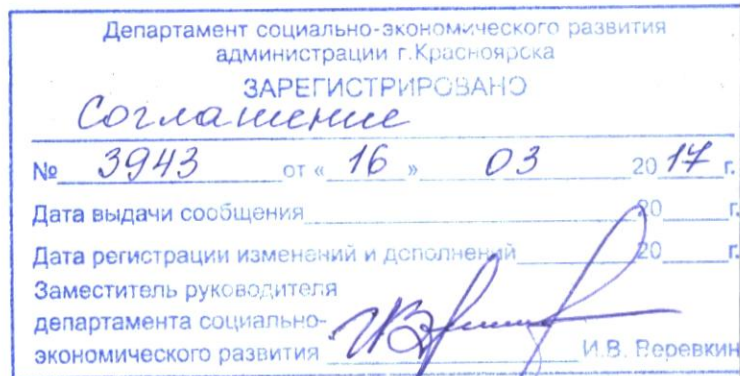 Департамент социально-экономического развития
администрации г.Красноярска
ЗАРЕГИСТРИРОВАНО
Соглашение
№ 3943 от « 16 » 03 2017 г.
Дата выдачи сообщения 20 г.
Дата регистрации изменений и дополнений 20 г.
Заместитель руководителя
департамента социально-
экономического развития И.В. Веревкин